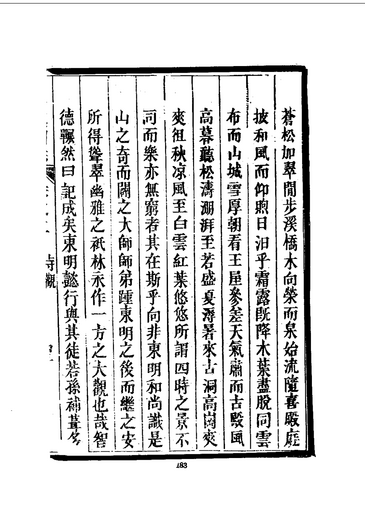 蒼松加翠閒步溪橋水向榮而泉始流隨喜殿庭
披和風而仰煦日洎乎霜露既降木葉盡脫同雲
布而山城雪厚朝看王屋參差天氣肅而古殿風
高暮聽松濤澎湃至若盛夏溽暑來古洞高崗爽
爽祖秋凉風至白雲紅葉悠悠所謂四時之景不
同而樂亦無窮者其在斯乎向非東明和尚識是
山之奇而闢之大師師弟踵東明之後而繼之安
所得聳翠幽雅之祇林永作一方之大觀也哉智
德囅然曰記成矣東明懿行與其徒若孫補葺多
寺觀
183